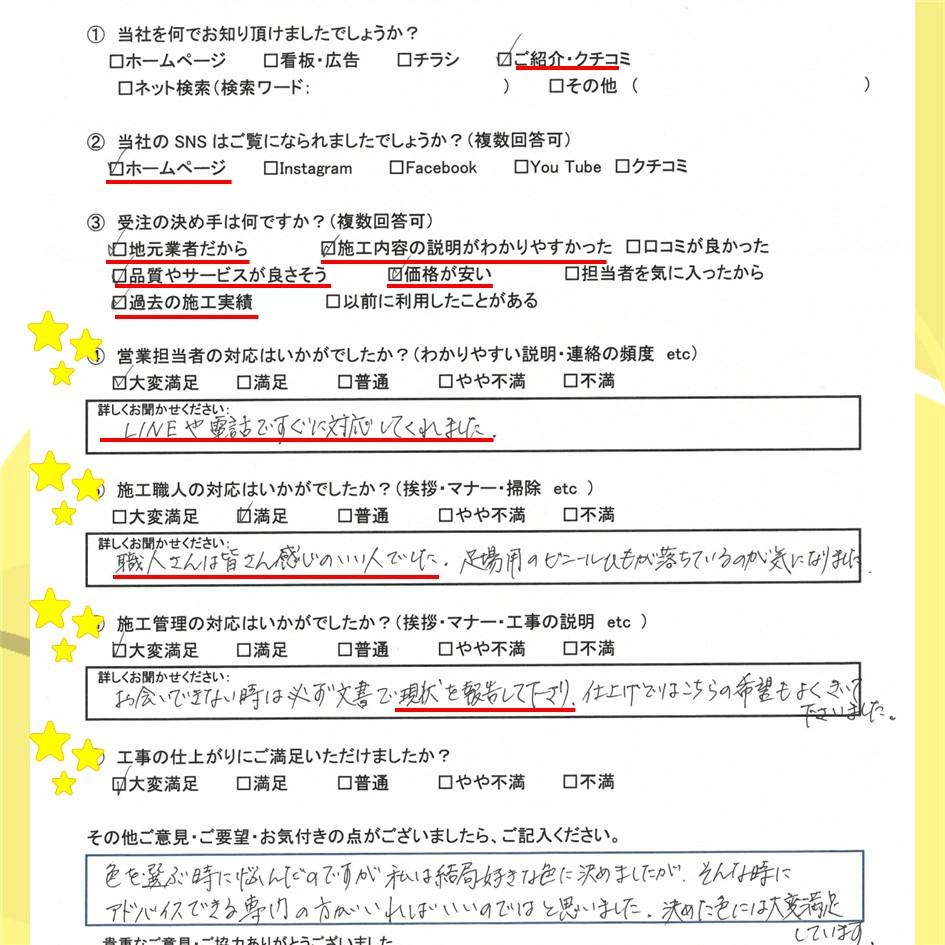 ① 当社を何でお知り頂けましたでしょうか？
□ホームページ □看板・広告 □チラシ ☑ご紹介・クチコミ
□ネット検索（検索ワード： ） □その他 （ ）
② 当社の SNS はご覧になられましたでしょうか？（複数回答可）
☑ホームページ □Instagram □Facebook □You Tube □クチコミ
③ 受注の決め手は何ですか？（複数回答可）
☑地元業者だから ☑施工内容の説明がわかりやすかった □口コミが良かった
☑品質やサービスが良さそう ☑価格が安い □担当者を気に入ったから
☑過去の施工実績 □以前に利用したことがある
④ 営業担当者の対応はいかがでしたか？（わかりやすい説明・連絡の頻度 etc）
☑大変満足 □満足 □普通 □やや不満 □不満
詳しくお聞かせください：
LINEや電話ですぐに対応してくれました．
施工職人の対応はいかがでしたか？（挨拶・マナー・掃除 etc ）
□大変満足 ☑満足 □普通 □やや不満 □不満
詳しくお聞かせください：
職人さんは皆さん感じのいい人でした．足場用のビニールひもが落ちているのが気になりました．
施工管理の対応はいかがでしたか？（挨拶・マナー・工事の説明 etc ）
☑大変満足 □満足 □普通 □やや不満 □不満
詳しくお聞かせください：
お会いできない時は必ず文書で現状を報告して下さり、仕上げではこちらの希望もよくきいて
下さいました。
工事の仕上がりにご満足いただけましたか？
☑大変満足 □満足 □普通 □やや不満 □不満
その他ご意見・ご要望・お気付きの点がございましたら、ご記入ください。
色を選ぶ時に悩んだのですが私は結局好きな色に決めましたが、そんな時に
アドバイスできる専門の方がいればいいのではと思いました．決めた色には大変満足
しています．
貴重なご意見・ご協力ありがとうございました